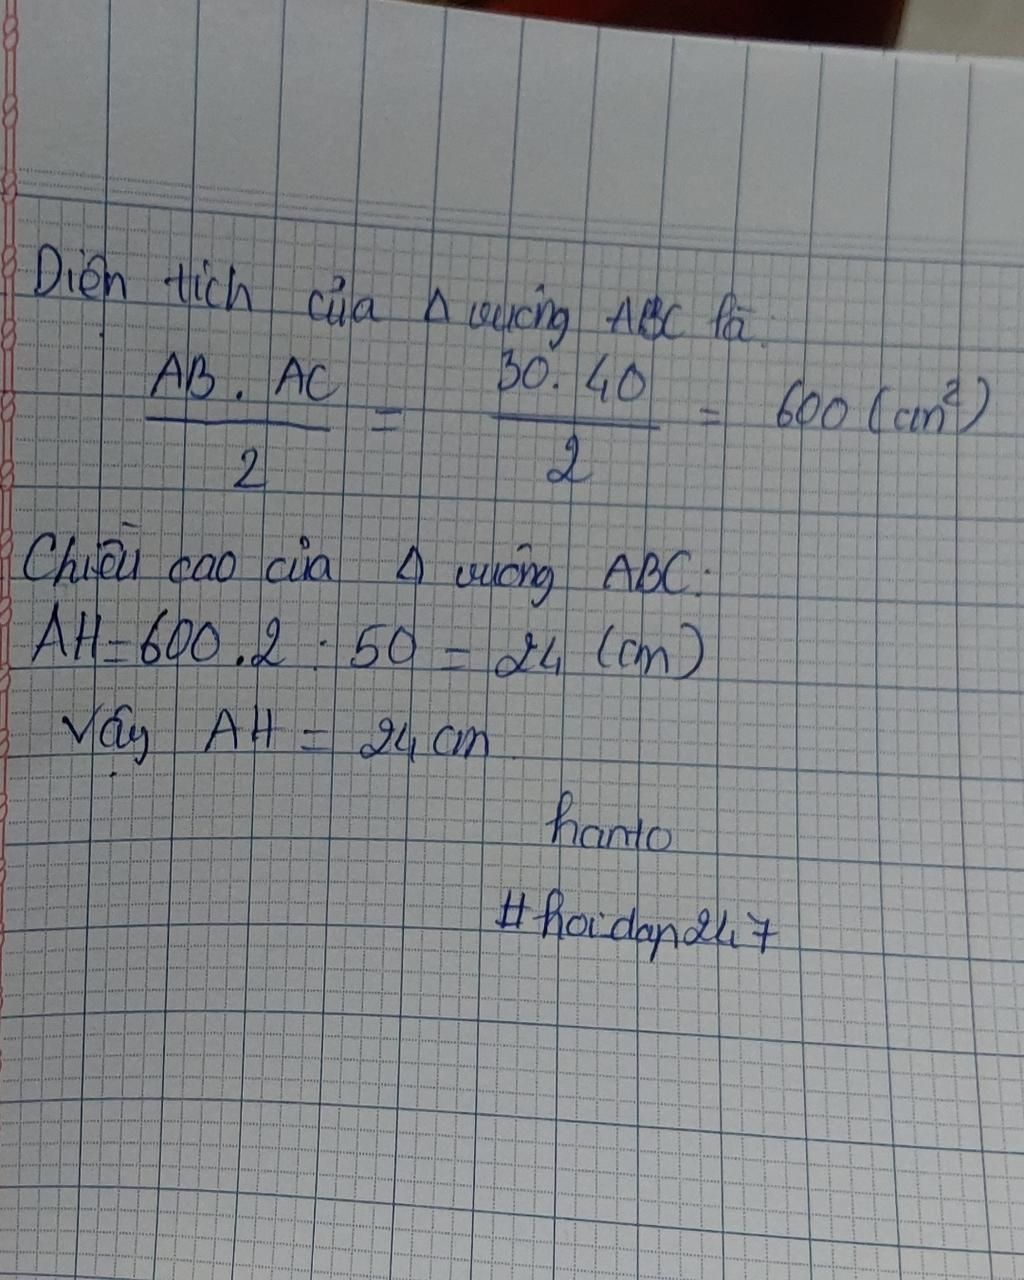 Diện tích của Δ vuông ABC là:
AB . AC / 2 = 30. 40 / 2 = 600 (cm²)
Chiều cao của Δ vuông ABC:
AH = 600 . 2 : 50 = 24 (cm)
Vậy AH = 24 cm
hanto
#hoidap247